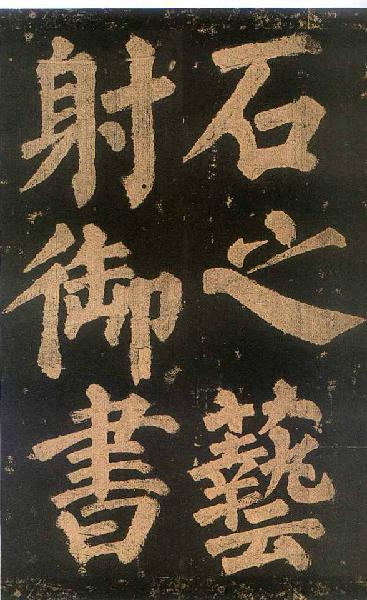 石之藝
射御書